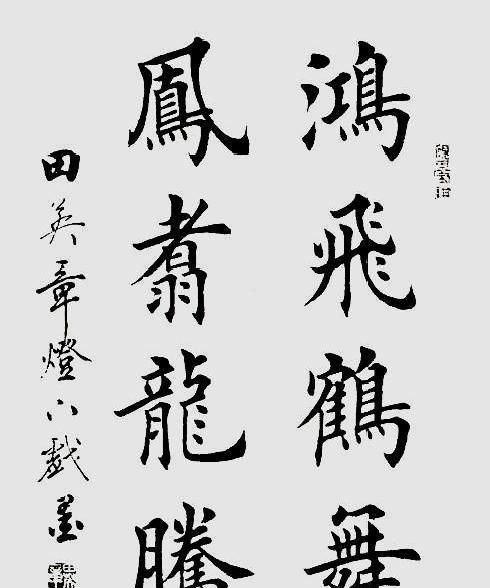 鴻飛鶴舞
鳳翥龍騰
田英章燈下戲墨